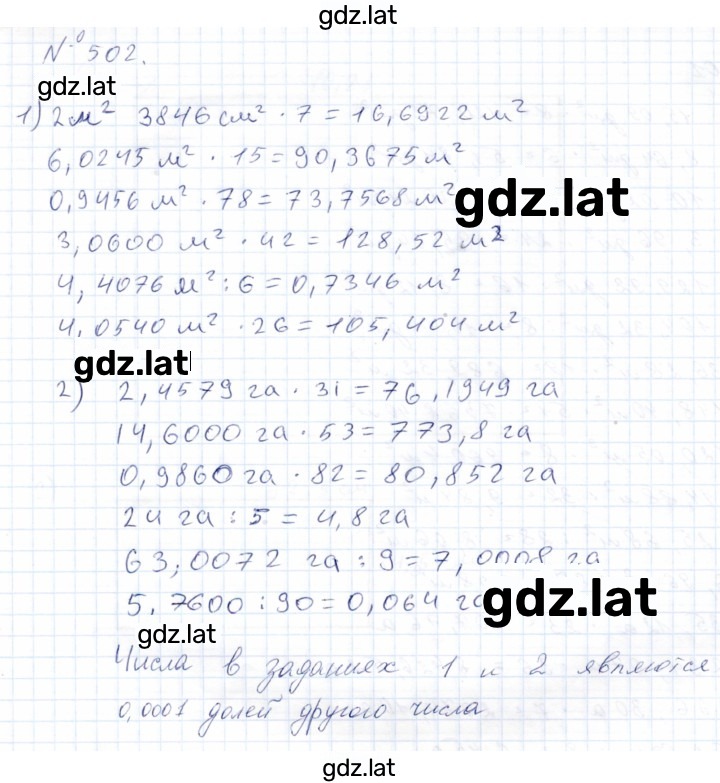 gdz.lat
№ 502.
gdz.lat
1) 2 м² 3846 см² · 7 = 16,6922 м²
6,0245 м² · 15 = 90,3675 м²
0,9456 м² · 78 = 73,7568 м²
gdz.lat
3,0600 м² · 42 = 128,52 м²
4,4076 м² : 6 = 0,7346 м²
4,0540 м² · 26 = 105,404 м²
gdz.lat
2) 2,4579 га · 31 = 76,1949 га
14,6000 га · 53 = 773,8 га
0,9860 га · 82 = 80,852 га
24 га : 5 = 4,8 га
63,0072 га : 9 = 7,0008 га
5,7600 : 90 = 0,064 га
gdz.lat
gdz.lat
Числа в заданиях 1 и 2 являются
0,0001 долей другого числа
gdz.lat